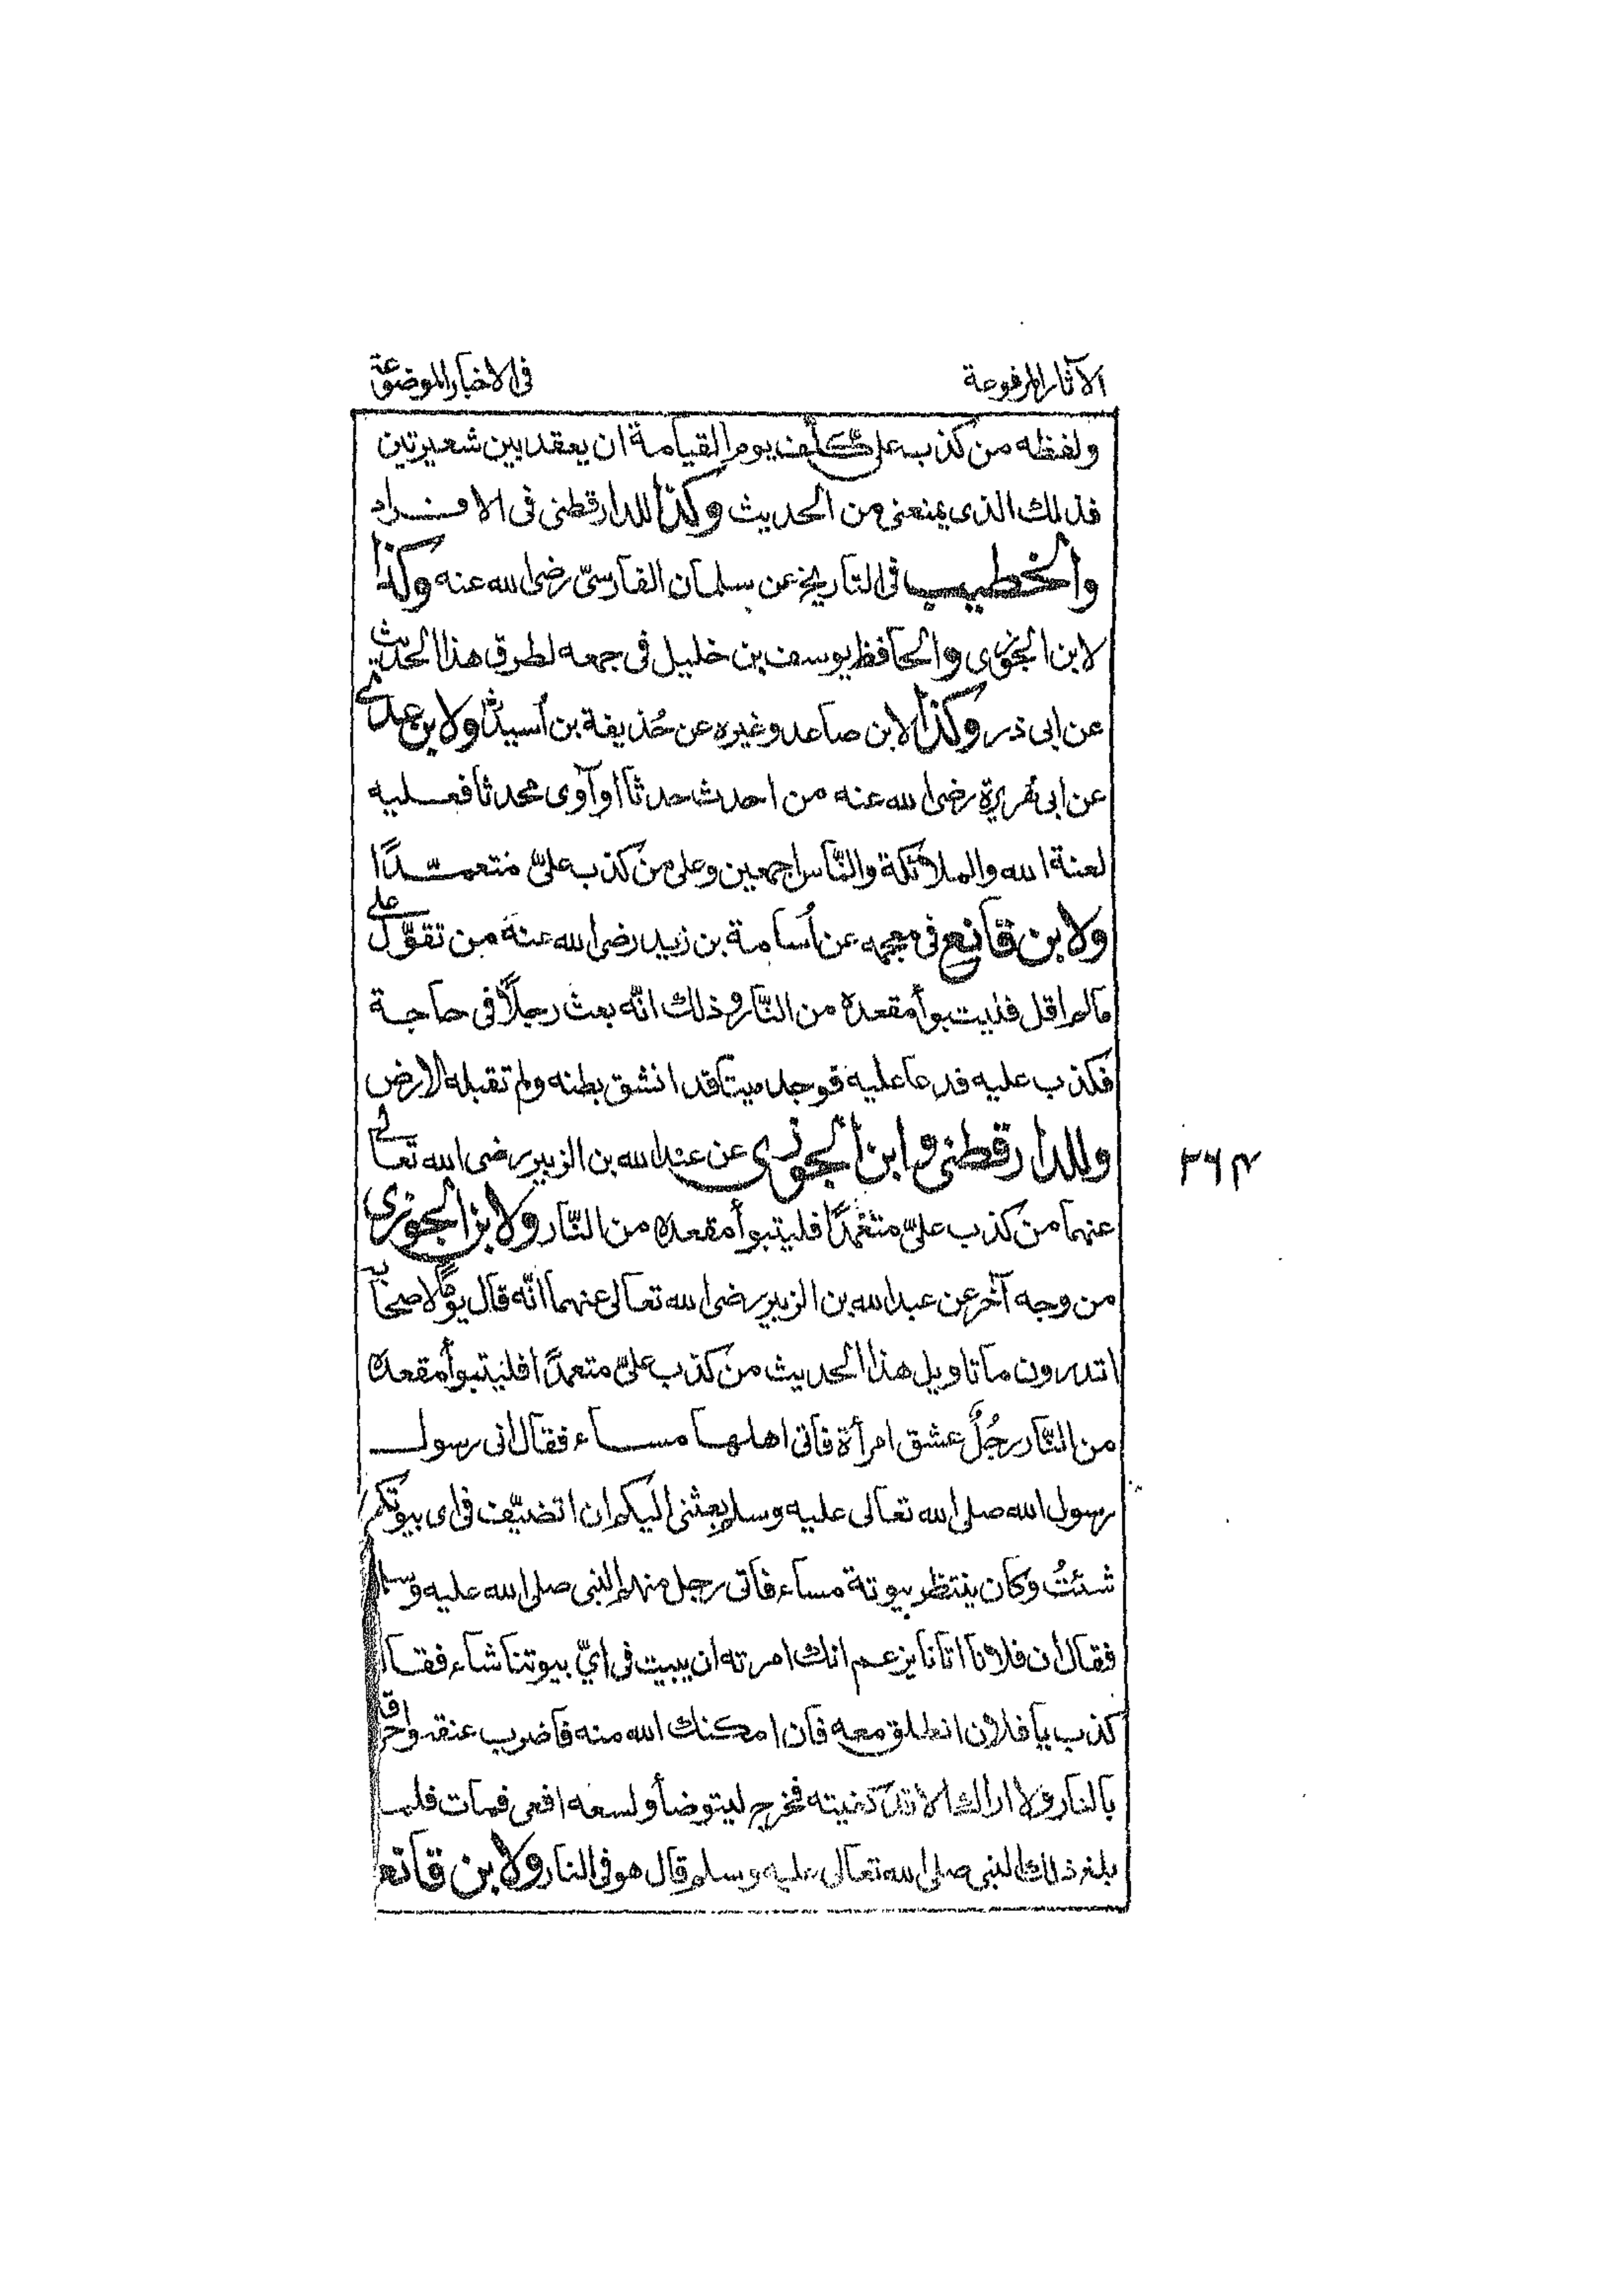 الآثار المرفوعة
فى الاخبار الموضوعة
ولفظه من كذب على كلف يوم القيامة ان يعقد بين شعيرتين
فذلك الذى يمنعنى من الحديث وكذا للدارقطنى فى الافراد
والخطيب فى التاريخ عن سلمان الفارسىّ رضى الله عنه وكذا
لابن الجوزى والحافظ يوسف بن خليل فى جمعه لطرق هذا الحديث
عن ابى ذر وكذا لابن صاعد وغيره عن حُذيفة بن أسيد ولابن عدى
عن ابى هُريرة رضى الله عنه من احدث حدثا او آوى محدثا فعليه
لعنة الله والملائكة والنّاس اجمعين وعلى من كذب علىّ متعمّدًا
ولابن قانع فى معجمه عن أسامة بن زيد رضى الله عنه من تقوّل على
مالم اقل فليتبوأ مقعده من النّار وذلك انّه بعث رجلًا فى حاجة
فكذب عليه فدعا عليه فوجد ميتا قد انشق بطنه ولم تقبله الارض
وللدارقطنى وابن الجوزى عن عبد الله بن الزبير رضى الله تعالى
عنهما من كذب علىّ متعمدًا فليتبوأ مقعده من النّار ولابن الجوزى
من وجه آخر عن عبد الله بن الزبير رضى الله تعالى عنهما انّه قال يومًا لاصحابه
اتدرون ما تاويل هذا الحديث من كذب علىّ متعمدًا فليتبوأ مقعده
من النّار رجُلٌ عشق امرأة فاتى اهلها مساء فقال انى رسول
رسول الله صلى الله تعالى عليه وسلم بعثنى اليكم ان اتضيّف فى اى بيوتكم
شئتُ وكان ينتظر بيوتة مساء فاتى رجل منهم النبى صلى الله عليه وسلم
فقال ان فلانا اتانا يزعم انك امرته ان يبيت فى اىّ بيوتنا شاء فقال
كذب يا فلان انطلق معه فان امكنك الله منه فاضرب عنقه واحرقه
بالنار ولا اراك الا قد كفيته فخرج ليتوضأ ولسعه افعى فمات فلما
بلغ ذلك النبى صلى الله تعالى عليه وسلم قال هو فى النار ولابن قانع